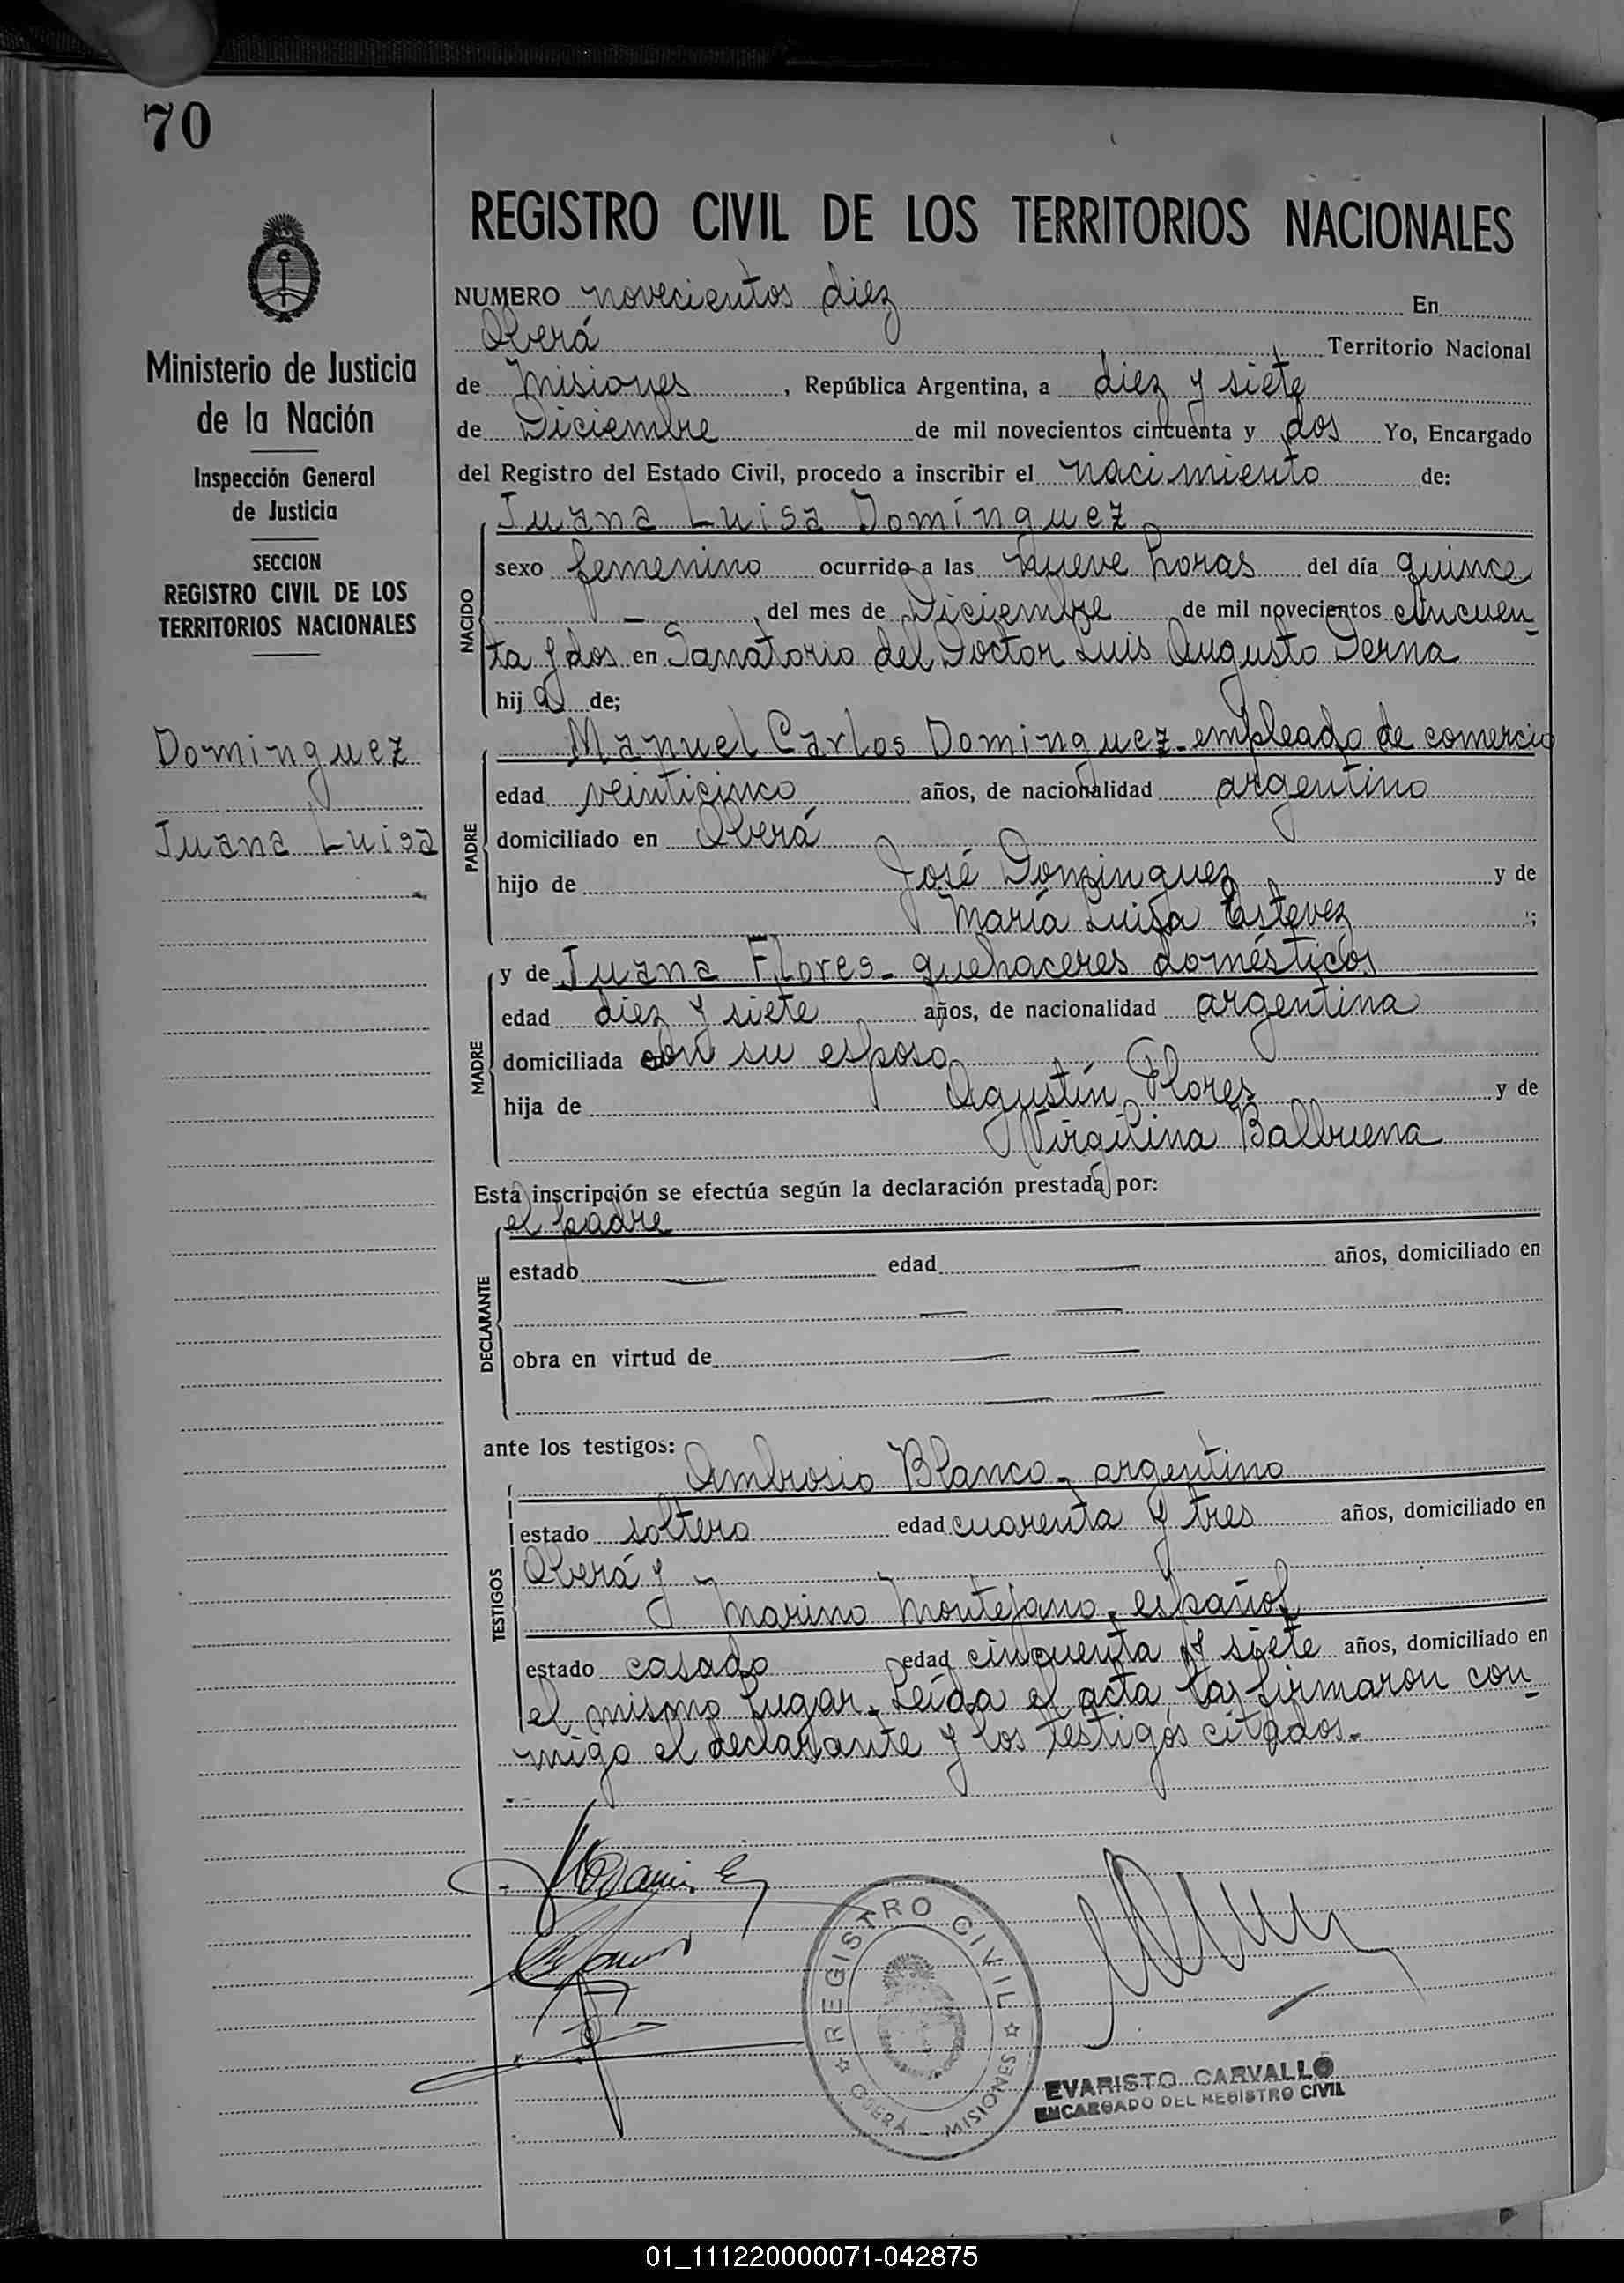 70
REGISTRO CIVIL DE LOS TERRITORIOS NACIONALES
Ministerio de Justicia
de la Nación
Inspección General
de Justicia
SECCION
REGISTRO CIVIL DE LOS
TERRITORIOS NACIONALES
Dominguez
Juana Luisa
NUMERO novecientos diez En
Oberá Territorio Nacional
de Misiones, República Argentina, a diez y siete
de Diciembre de mil novecientos cincuenta y dos Yo, Encargado
del Registro del Estado Civil, procedo a inscribir el nacimiento de:
NACIDO
Juana Luisa Domínguez
sexo femenino ocurrido a las nueve horas del día quince
— del mes de Diciembre de mil novecientos cincuen-
ta y dos en Sanatorio del Doctor Luis Augusto Derna
hija de;
PADRE
Manuel Carlos Dominguez - empleado de comercio
edad veinticinco años, de nacionalidad argentino
domiciliado en Oberá
hijo de José Dominguez y de
María Luisa Estevez ;
MADRE
y de Juana Flores - quehaceres domésticos
edad diez y siete años, de nacionalidad argentina
domiciliada con su esposo
hija de Agustín Flores y de
Virgilina Balbuena
Esta inscripción se efectúa según la declaración prestada por:
DECLARANTE
el padre
estado — edad — años, domiciliado en
— —
obra en virtud de — —
— —
ante los testigos:
TESTIGOS
Ambrosio Blanco - argentino
estado soltero edad cuarenta y tres años, domiciliado en
Oberá y
Marino Montejano - español
estado casado edad cincuenta y siete años, domiciliado en
el mismo lugar. Leída el acta la firmaron con-
migo el declarante y los testigos citados.-
REGISTRO CIVIL
OBERÁ - MISIONES
EVARISTO CARVALLO
ENCARGADO DEL REGISTRO CIVIL
01_111220000071-042875